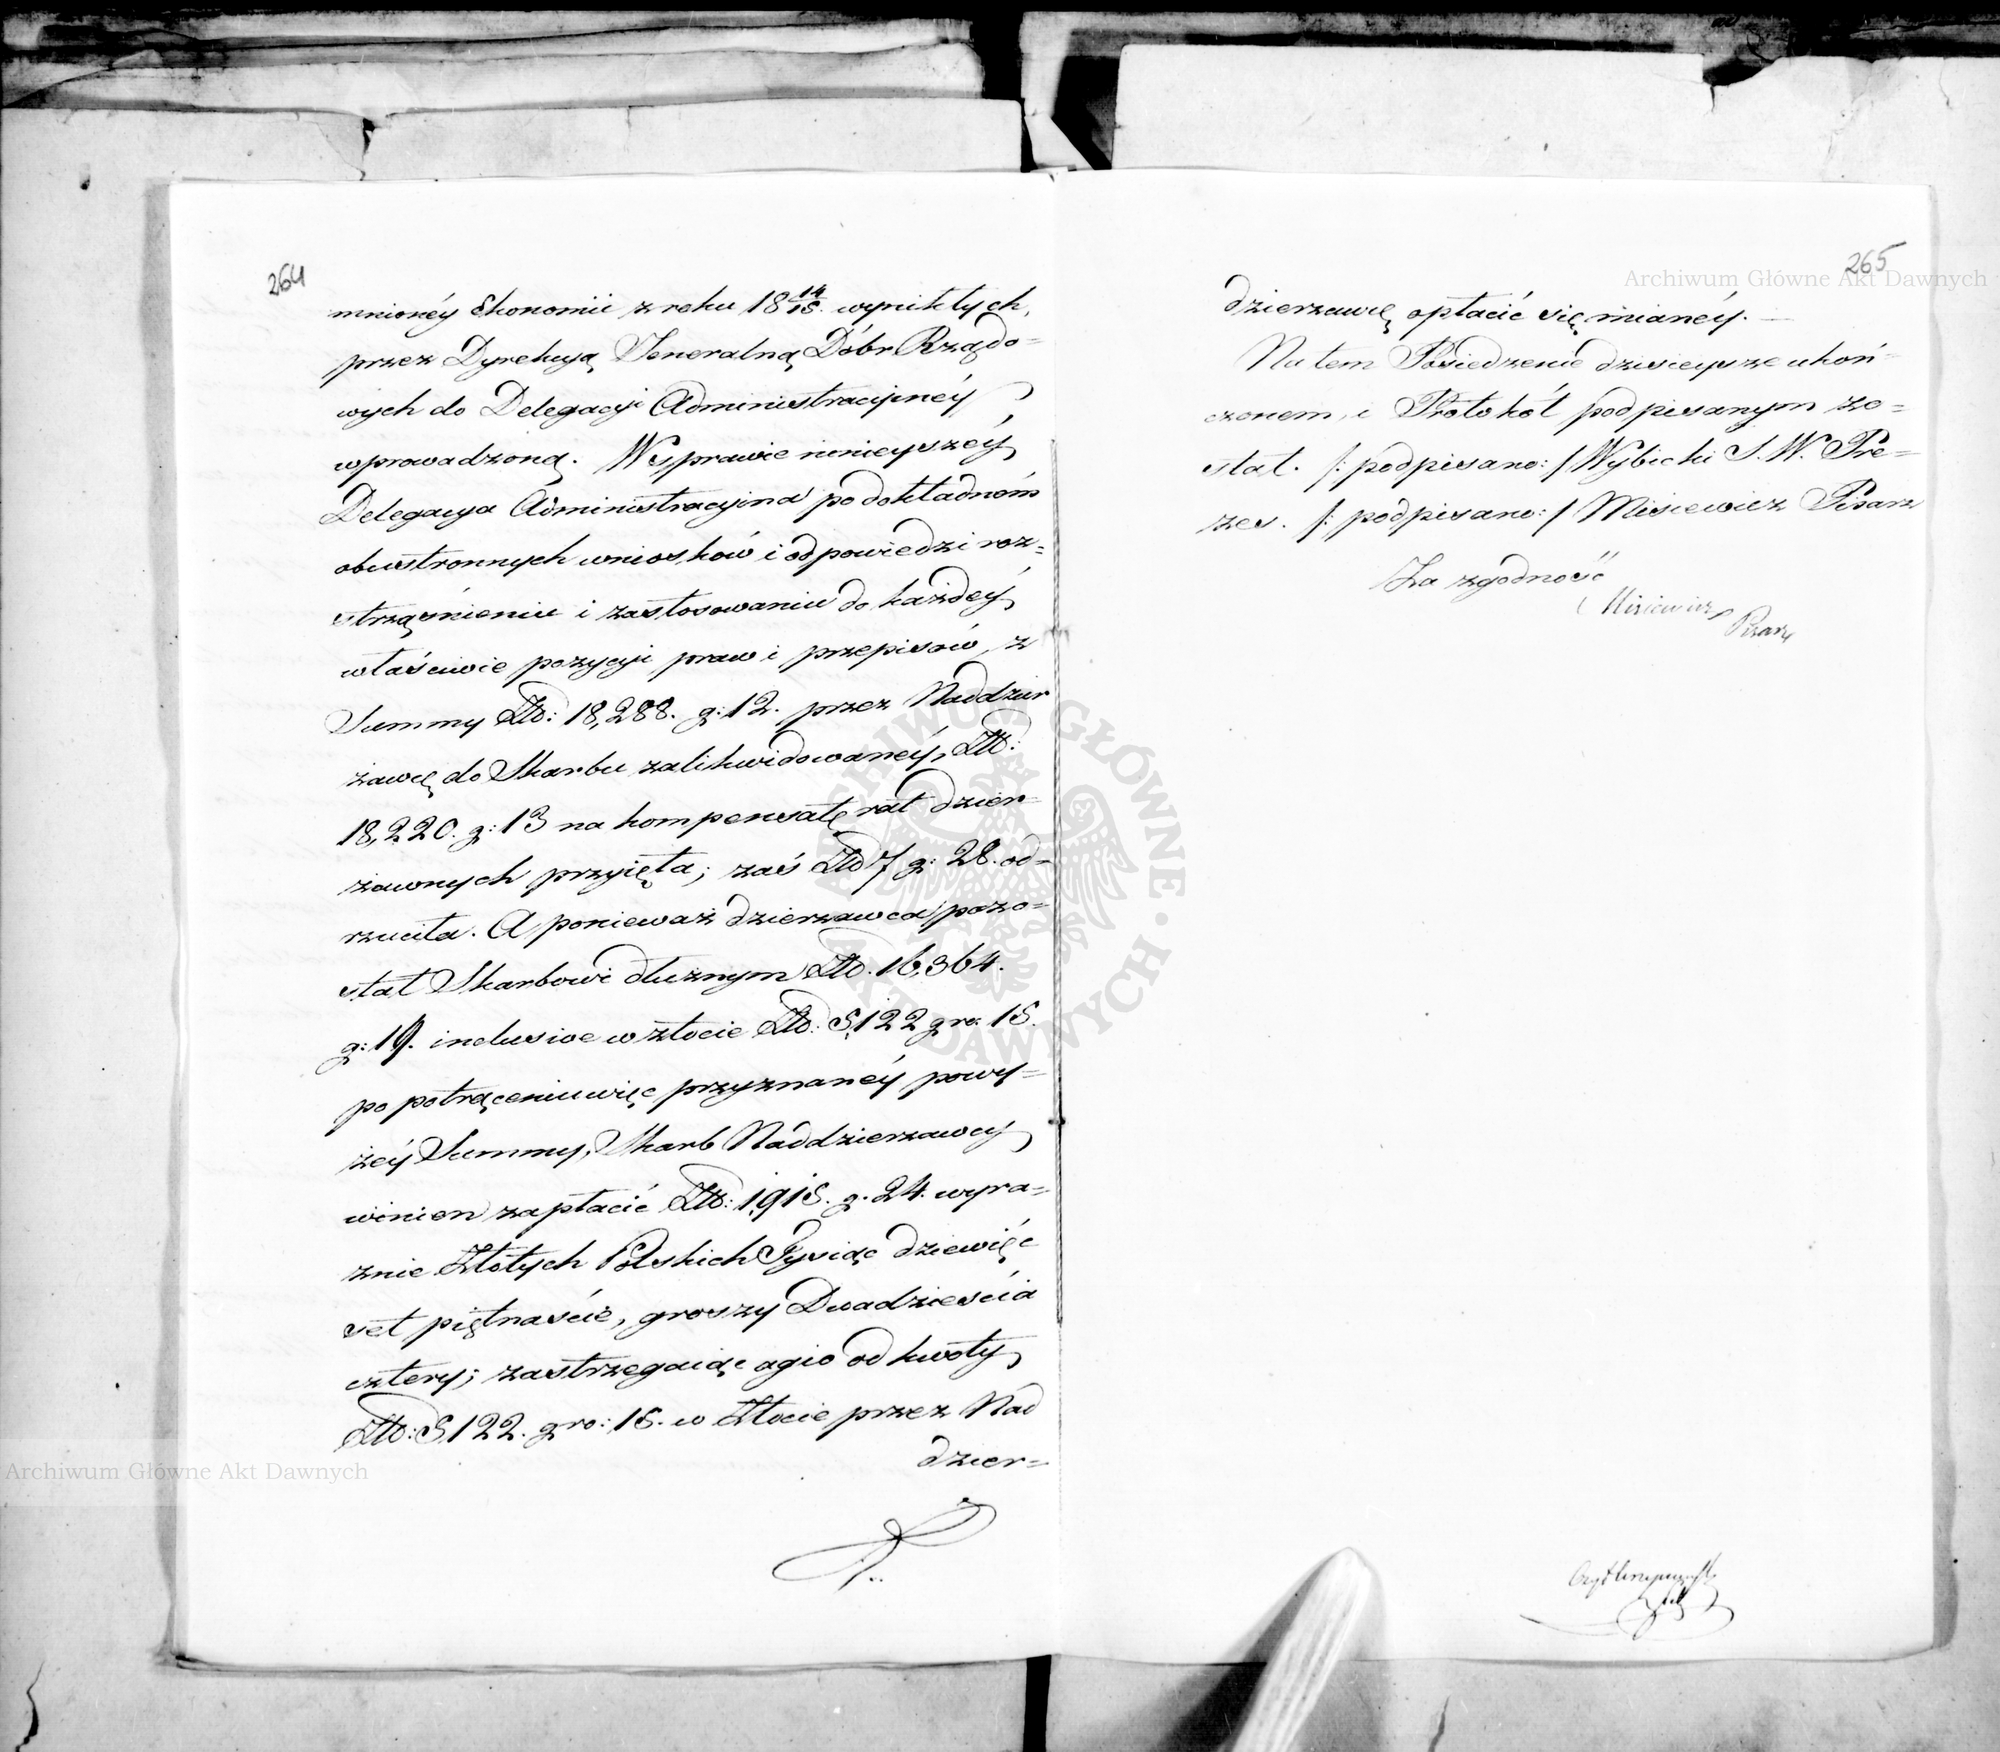 264
mnionéy Ekonomii z roku 18 14/15. wynikłych,
przez Dyrekcyą Jeneralną Dóbr Rządo=
wych do Delegacyi Administracyinéy
wprowadzoną. W sprawie ninieyszéy
Delegacya Administracyina po dokładném
obustronnych wniosków i odpowiedzi roz=
strząśnieniu i zastosowaniu do każdéy
właściwie pozycyi praw i przepisów, z
Summy Złł: 18,288. g: 12. przez Naddzier
żawcę do Skarbu zalikwidowanéy, Złł:
18,220. g: 13 na kompensatę rat dzier=
żawnych przyięła; zaś Złł 7 g: 28. od=
rzuciła. A ponieważ dzierzawca pozo=
stał Skarbowi dłużnym Złł. 16,364.
g: 19. inclusive w złocie Złł: 5,122 gr: 15.
po potrąceniu więc przyznanéy powy=
żéy Summy, Skarb Naddzierzawcy
winien zapłacić Złł: 1,915. g. 24. wyra=
znie Złotych Polskich Tysiąc dziewięć
set piętnaście, groszy Dwadzieścia
cztery; zastrzegaiąc agio od kwoty
Złł: 5,122. gro: 15. w Złocie przez Nad
dzier=
265
dzierzawcę opłacić się mianéy. —
Na tem Posiedzenie dzisieysze ukoń=
czonem, i Protokół podpisanym zo=
stał. /: podpisano: / Wybicki S. W. Pre=
zes. /: podpisano: / Misiewicz Pisarz
Za zgodność
Misiewicz
Pisarz
Archiwum Główne Akt Dawnych
Archiwum Główne Akt Dawnych
ARCHIWUM GŁÓWNE AKT DAWNYCH